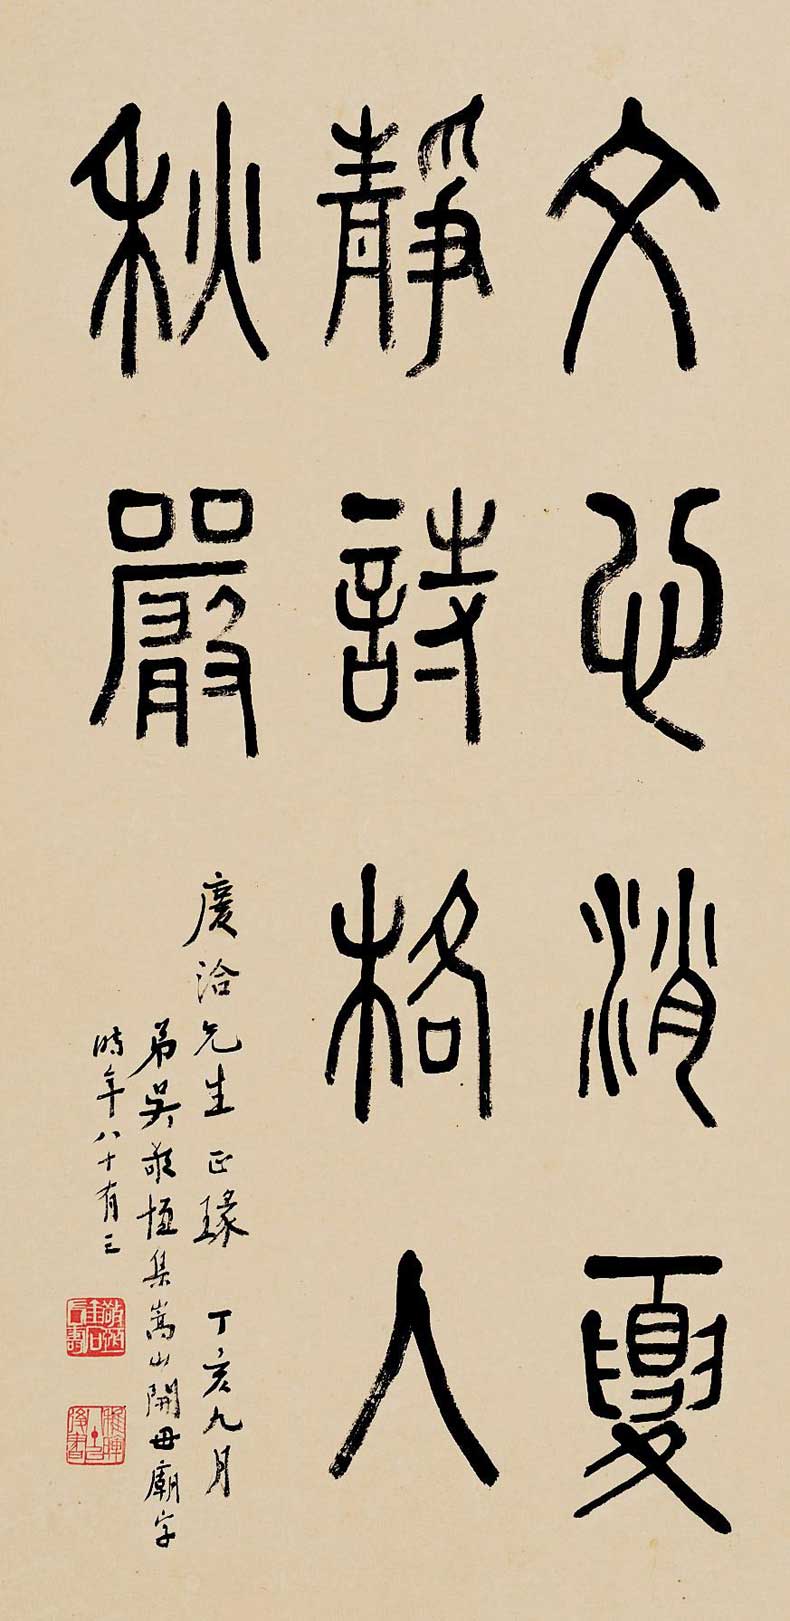 文心消夏
靜詩格入
秋嚴
慶洽先生正瑑 丁亥九月
弟吳敬恆集嵩山開母廟字
時年八十有三